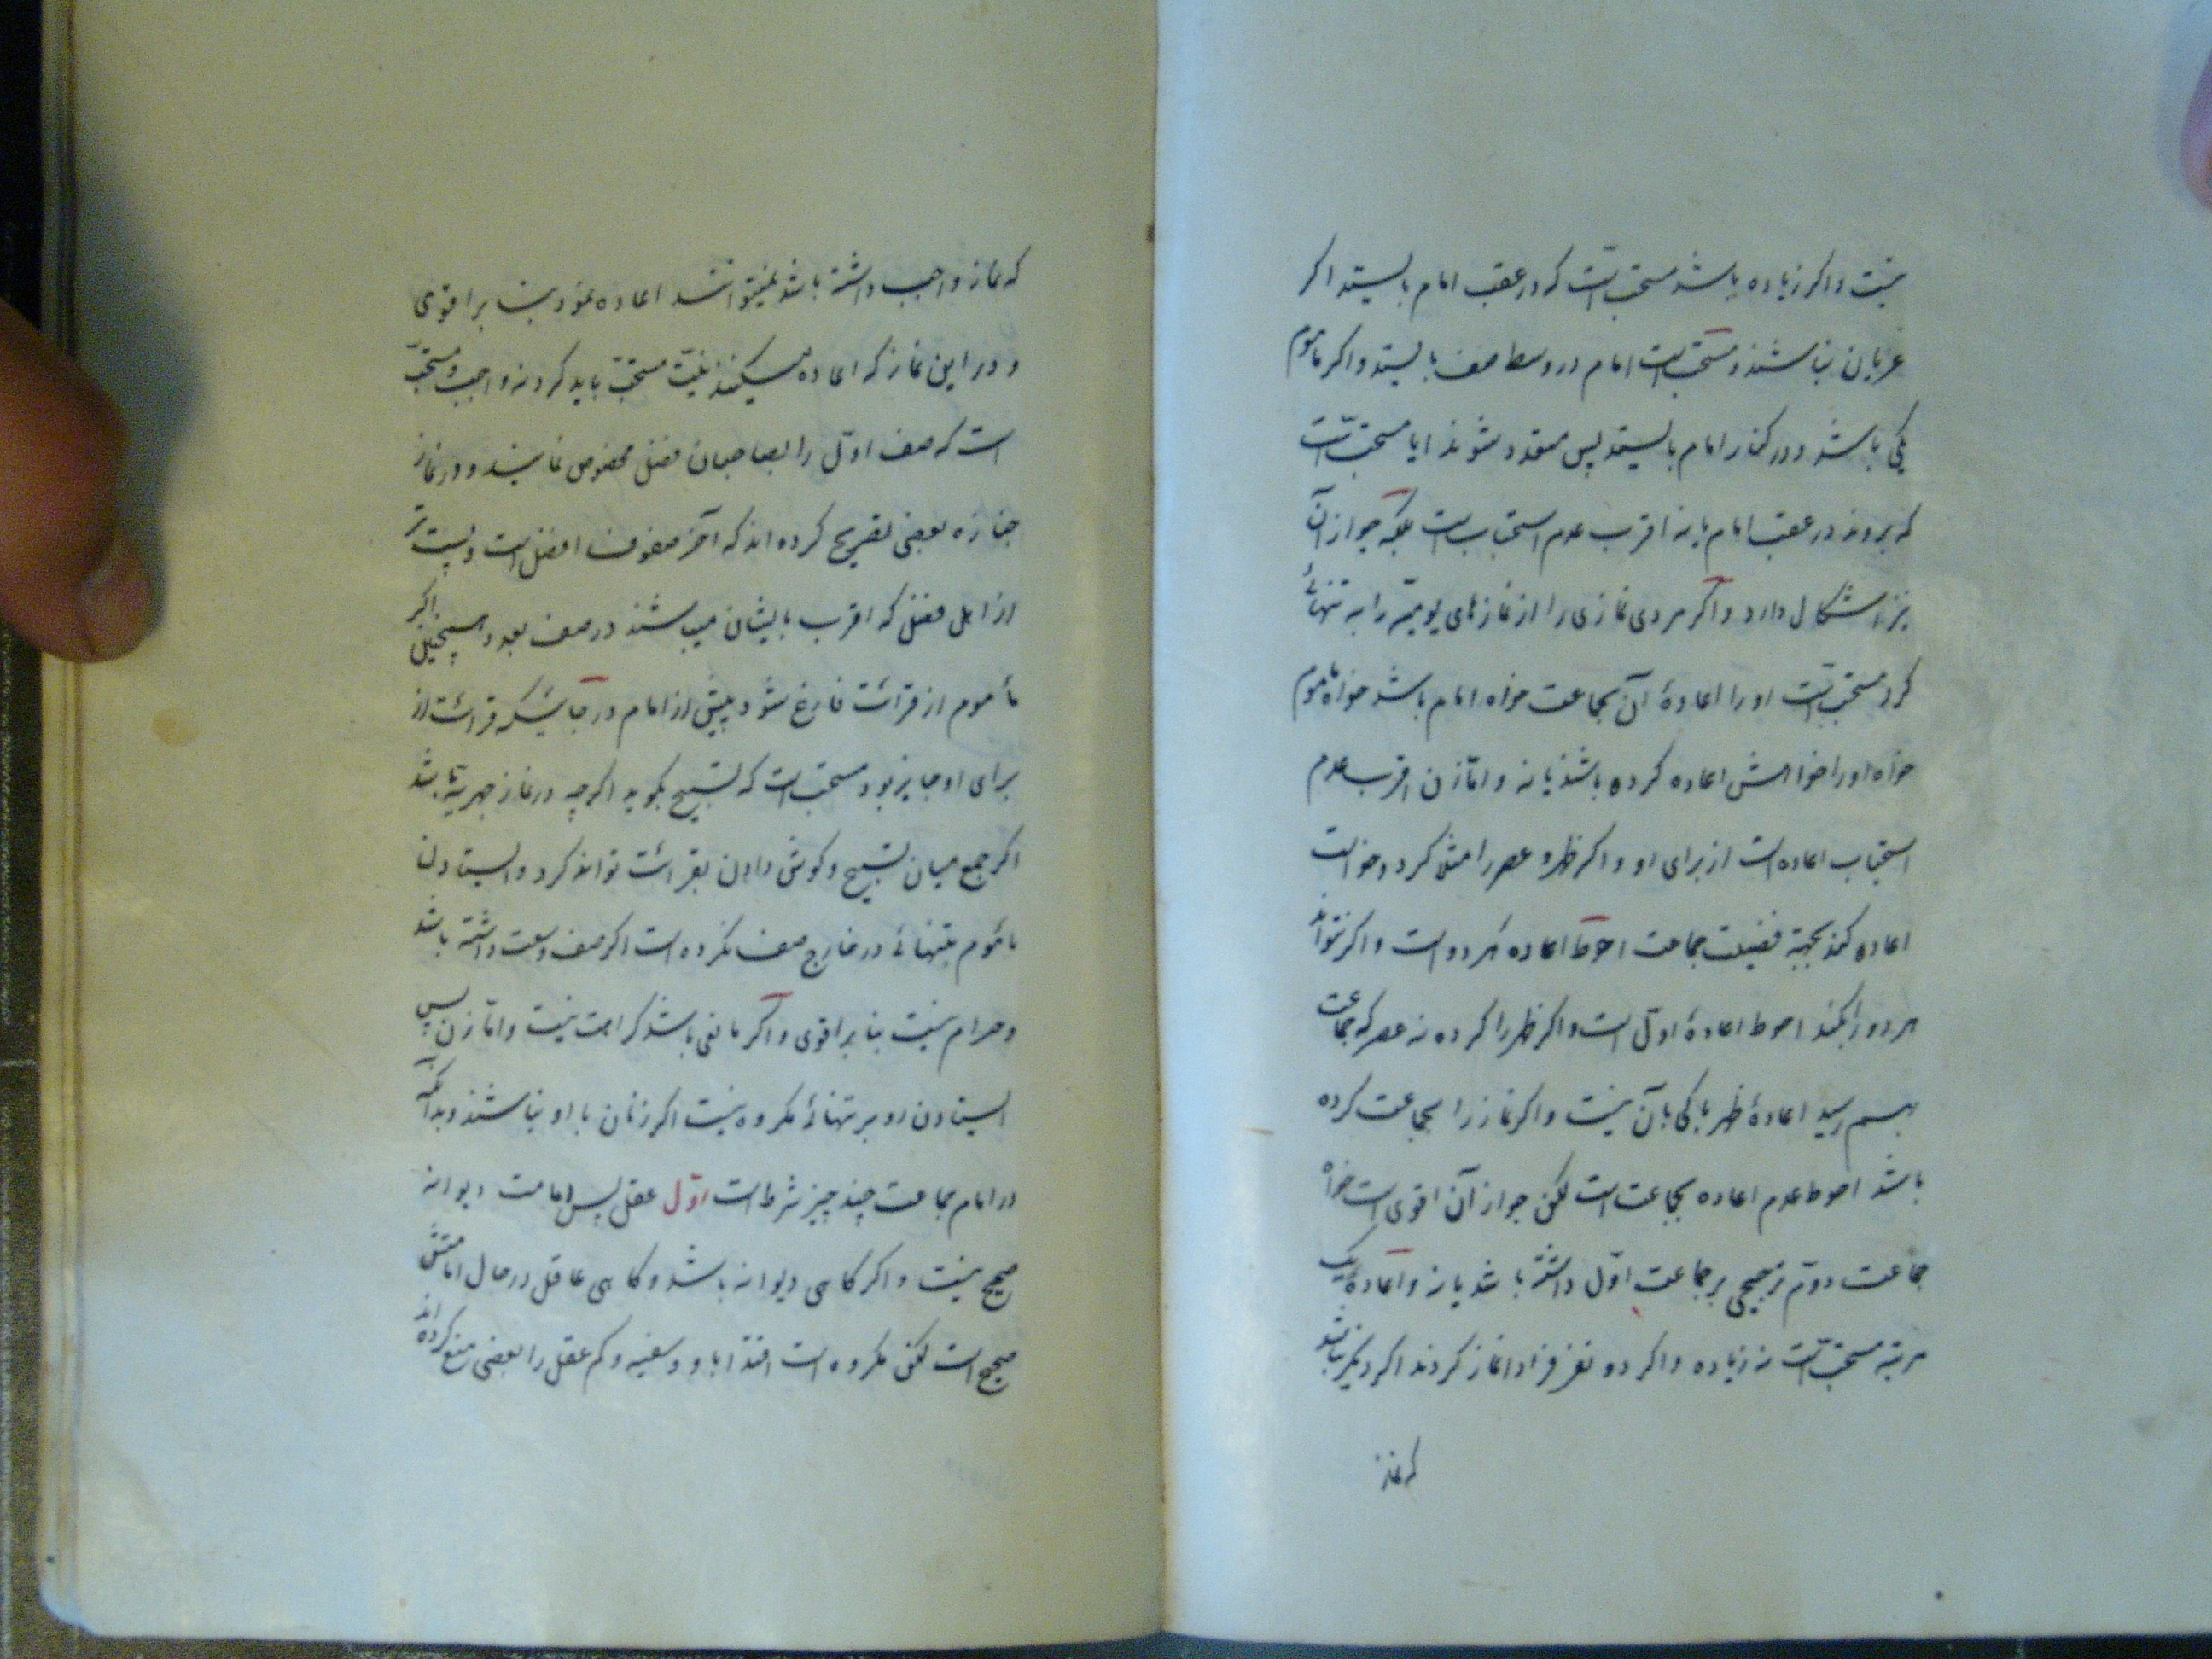 نیست و اکر زیاده باشد مستحب است که در عقب امام بایستد اکر
عریان نباشند و مستحب است امام در وسط صف بایستد و اکر ماموم
یکی باشد و در کنار امام بایستد پس متعدد شوند ایا مستحب است
که بروند در عقب امام یا نه اقرب عدم استحباب است بلکه جواز آن
نیز اشکال دارد و اکر مردی نمازی را از نمازهای یومیّه را به تنهائی
کرد مستحب است او را اعادهٔ آن بجماعت خواه امام باشد خواه ماموم
خواه اورا خواهش اعاده کرده باشند یا نه و امّا زن اقرب عدم
استحباب اعاده است از برای او و اکر ظهر و عصر را مثلا کرد و خواست
اعاده کند بجهة فضیلت جماعت احوط اعاده هر دو است و اکر نتواند
هر دو را بکند احوط اعادهٔ اوّل است و اکر ظهر را کرده نه عصر که جماعت
بهم رسید اعادهٔ ظهر باکی بآن نیست و اکر نماز را بجماعت کرده
باشد احوط عدم اعاده بجماعت است لکن جواز آن اقوی است خواه
جماعت دوّم ترجیحی بر جماعت اوّل داشته باشد یا نه و اعادهٔ یک
مرتبه مستحب است نه زیاده و اکر دو نفر فرادا نماز کردند اکر دیکر نباشد
که نماز
که نماز واجب داشته باشد نمیتوانند اعاده نمود بنا بر اقوی
و در این نماز که اعاده میکنند نیّت مستحبّ باید کرد نه واجب و مستحبّ
است که صف اوّل را بصاحبان فضل مخصوص نمایند و در نماز
جنازه بعضی تصریح کرده اند که آخر صفوف افضل است و پست تر
از اهل فضل که اقرب بایشان میباشند در صف بعد و همچنین اکر
مأموم از قرائت فارغ شود پیش از امام در جائیکه قرائت از
برای او جایز بود مستحب است که تسبیح بکوید اکر چه در نماز جهریّه باشد
اکر جمع میان تسبیح و کوش دادن بقرائت تواند کرد و ایستادن
مأموم بتنهائی در خارج صف مکروه است اکر صف وسعت داشته باشد
و حرام نیست بنا بر اقوی و اکر مانعی باشد کراهت نیست و امّا زن پس
ایستادن او بر تنهائی مکروه نیست اکر زنان با او نباشند و بدانکه
در امام جماعت چند چیز شرط است اوّل عقل پس امامت دیوانه
صحیح نیست و اکر کاهی دیوانه باشد و کاهی عاقل در حال افاقتش
صحیح است لکن مکروه است اقتدا باو و سفیه و کم عقل را بعضی منع کرده اند